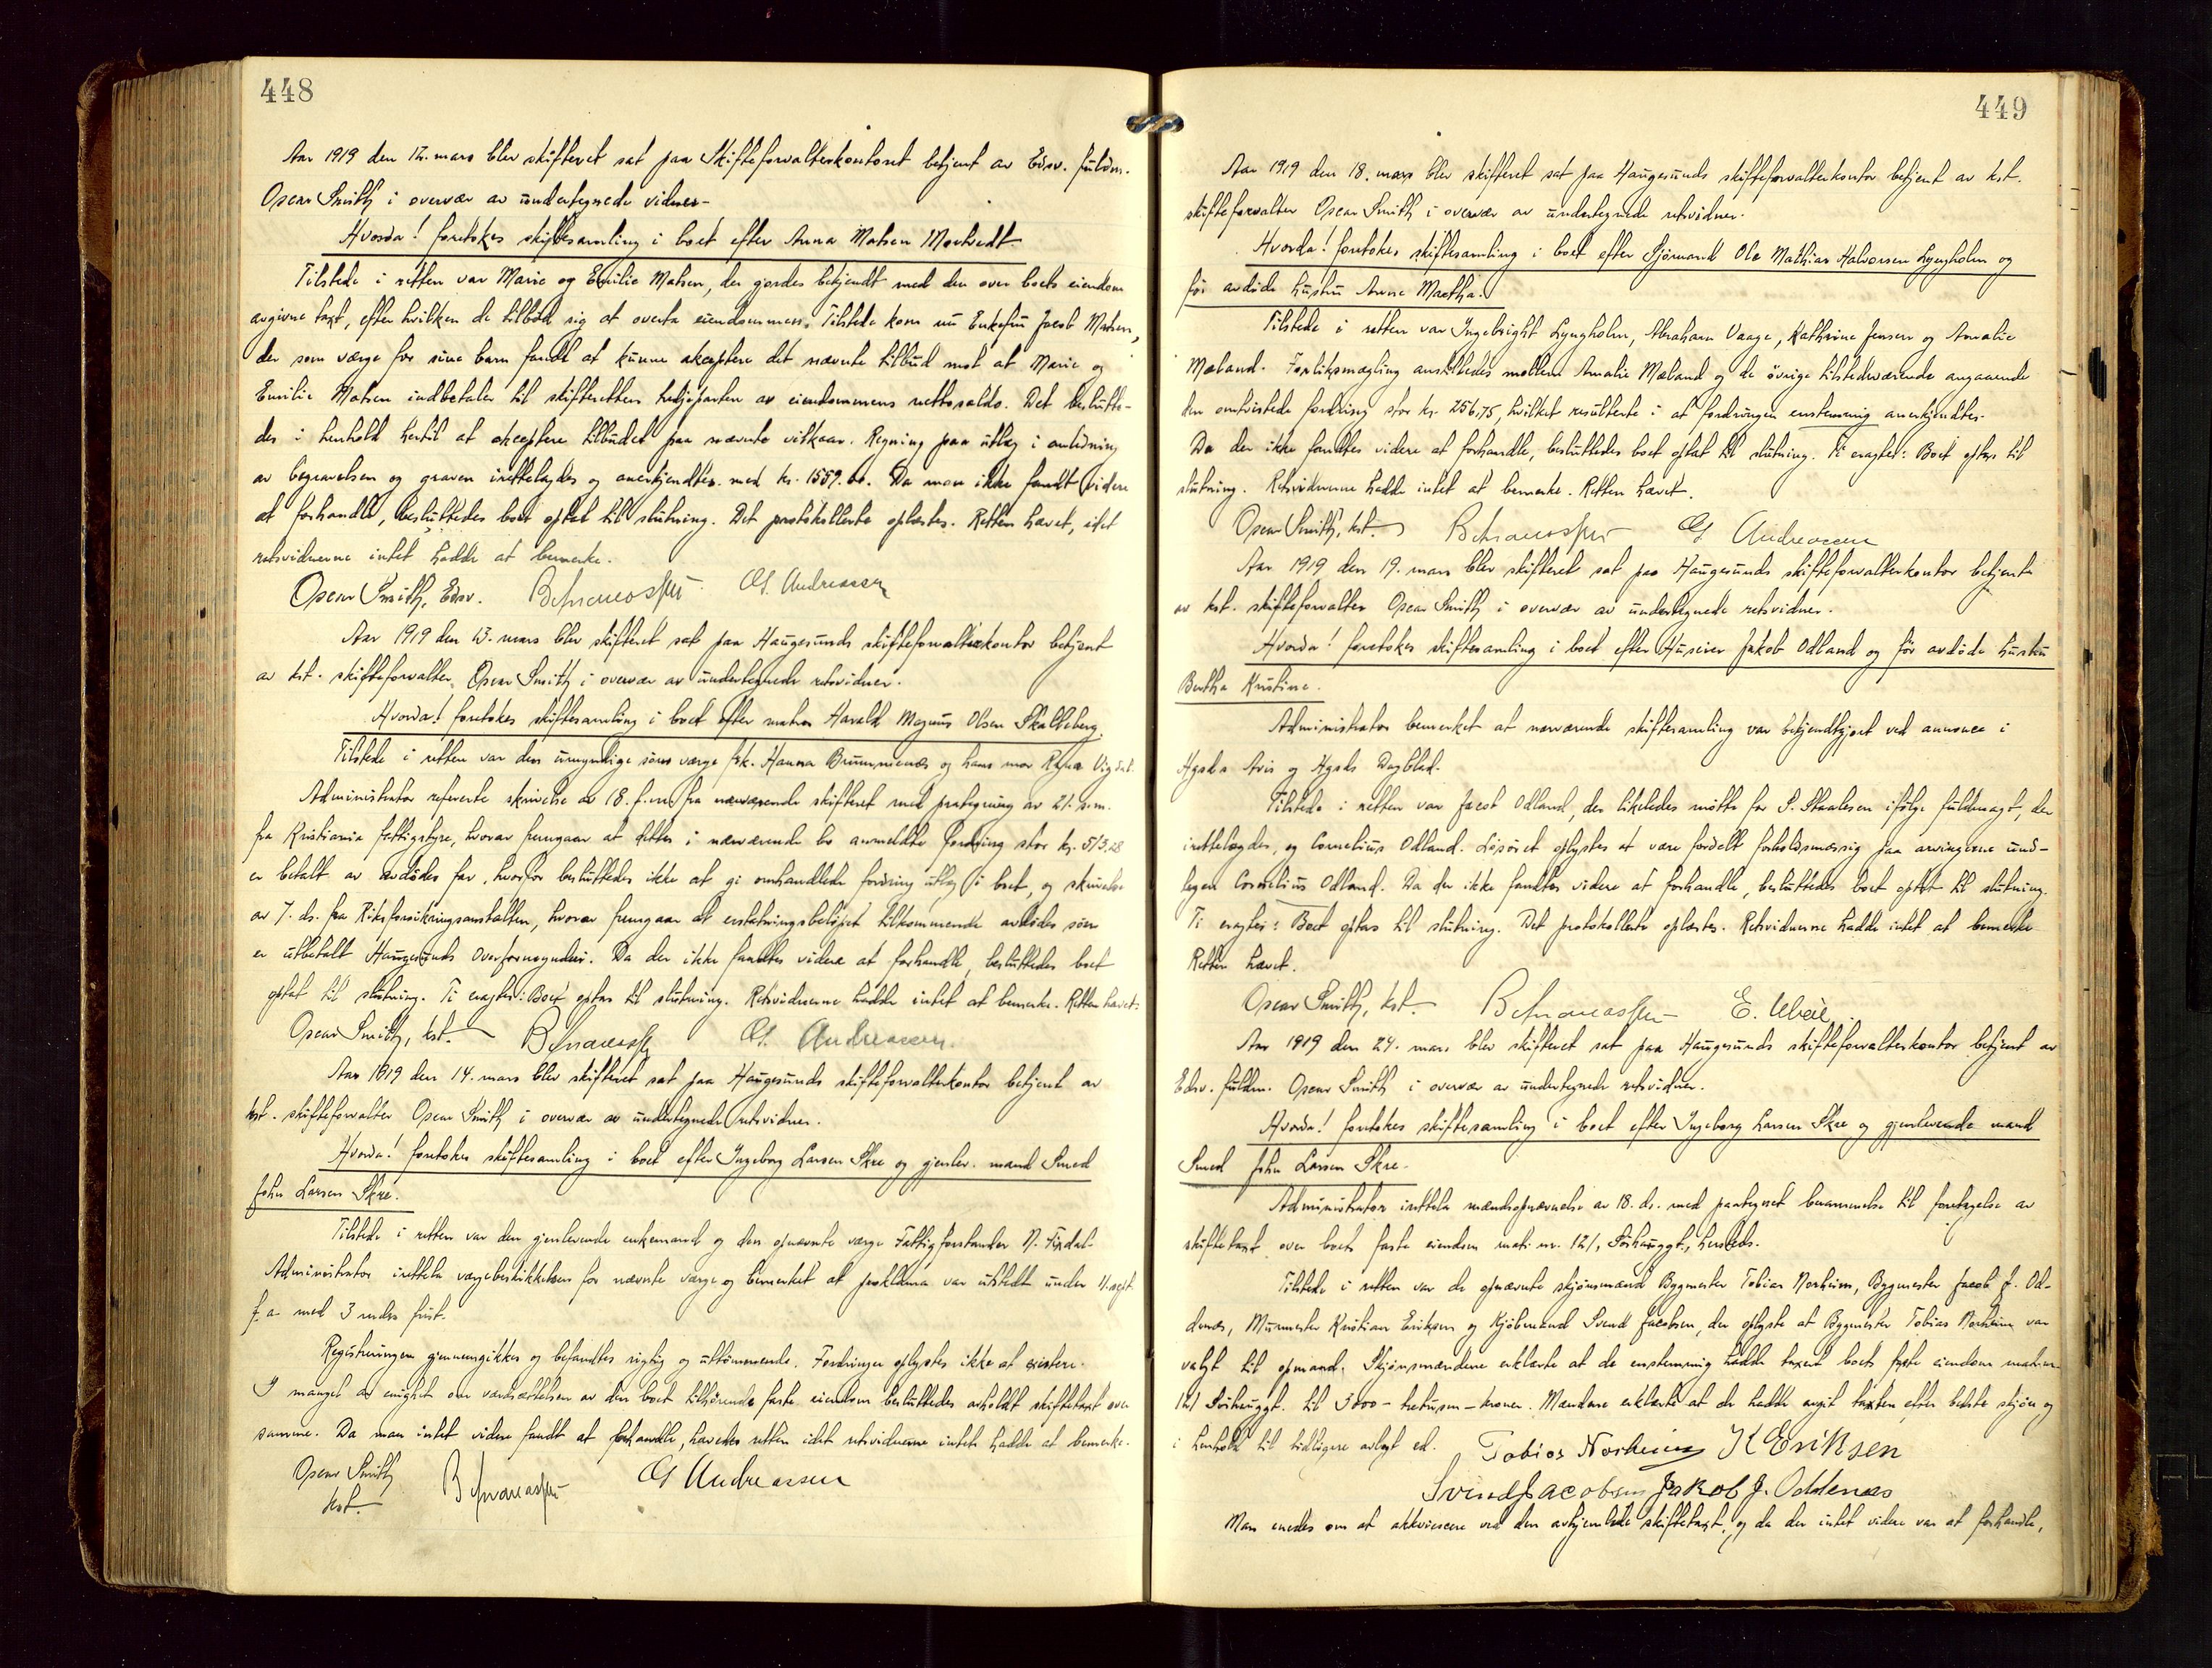 448
Aar 1919 den 12. mars blev skifteret sat paa Skifteforvalterkontoret betjent av Edsv. fuldm.
Oscar Smith i overvær av undertegnede vidner-
Hvorda! foretokes skiftesamling i boet efter Anna Matsen Mortvedt.
Tilstede i retten var Marie og Emilie Matsen, der gjordes bekjendt med den over boets eiendom
avgivne taxt, efter hvilken de tilbød sig at overta eiendommen. Tilstede kom nu Enkefru Jacob Matsen,
der som værge for sine barn fandt at kunne akceptere det nævnte tilbud mot at Marie og
Emilie Matsen indbetaler til skifteretten tredjeparten av eiendommens nettosaldo. Det beslutte-
des i henhold hertil at akceptere tilbudet paa nævnte vilkaar. Regning paa utlæg i anledning
av begravelsen og graven irettelagdes og anerkjendtes med kr. 1559.60. Da man ikke fandt videre
at forhandle, besluttedes boet optat til slutning. Det protokollerte oplæstes. Retten hævet, idet
retsvidnerne intet hadde at bemerke.
Oscar Smith, Edsv. G. Andreassen
Aar 1919 den 13. mars blev skifteret sat paa Haugesunds skifteforvalterkontor betjent
av kst. skifteforvalter Oscar Smith i overvær av undertegnede retsvidner.
Hvorda! foretokes skiftesamling i boet efter matros Harald Magnus Olsen Skalleberg.
Tilstede i retten var den umyndige søns værge frk. Hanna Brummenæs og hans mor
Administrator refererte skrivelse av 18. f.m. fra nærværende skifteret med paategning av 21. s.m.
fra Kristiania fattigstyre, hvorav fremgaar at dettes i nærværende bo anmeldte fordring stor kr. 513.28
er betalt av avdødes far, hvorfor besluttedes ikke at gi omhandlede fordring utlæg i boet, og skrivelse
av 7. ds. fra Riksforsikringsanstalten, hvorav fremgaar at erstatningsbeløpet tilkommende avdødes søn
er utbetalt Haugesunds Overformynderi. Da der ikke fandtes videre at forhandle, besluttedes boet
optat til slutning. Ti eragtes: Boet optas til slutning. Retsvidnerne hadde intet at bemerke. Retten hævet.
Oscar Smith, kst. G. Andreassen.
Aar 1919 den 14. mars blev skifteret sat paa Haugesunds skifteforvalterkontor betjent av
kst. skifteforvalter Oscar Smith i overvær av undertegnede retsvidner.
Hvorda! foretokes skiftesamling i boet efter Ingeborg Larsen Skre og gjenlev. mand Smed
John Larsen Skre.
Tilstede i retten var den gjenlevende enkemand og den opnævnte værge Fattigforstander N.
Administrator irettela værgebeskikkelsen for nævnte værge og bemerket at proklama var utstedt under 11. sept.
f.a. med 3 mdrs frist.
Registreringen gjennemgikkes og befandtes rigtig og uttømmende. Fordringer oplystes ikke at existere.
I mangel av enighet om værdsættelsen av den boet tilhørende faste eiendom besluttedes avholdt skiftetaxt over
samme. Da man intet videre fandt at forhandle, hævedes retten idet retsvidnerne intet hadde at bemerke.
Oscar Smith G. Andreassen
kst.
449
Aar 1919 den 18. mars blev skifteret sat paa Haugesunds skifteforvalterkontor betjent av kst.
skifteforvalter Oscar Smith i overvær av undertegnede retsvidner.
Hvorda! foretokes skiftesamling i boet efter Sjømand Ole Mathias Halvorsen Lyngholm og
før avdøde hustru Anne Martha.
Tilstede i retten var Ingebright Lyngholm, Abraham Vaage, Kathrine Jensen og Amalie
Mæland. Forliksmægling anstilledes mellem Amalie Mæland og de øvrige tilstedeværende angaaende
den omtvistede fordring stor kr. 256,75, hvilket resulterte i at fordringen enstemmig anerkjendtes.
Da der ikke fandtes videre at forhandle, besluttedes boet optat til slutning. Ti eragtet: Boet optas til
slutning. Retsvidnerne hadde intet at bemerke. Retten hævet.
Oscar Smith, kst. G Andreassen
Aar 1919 den 19. mars blev skifteret sat paa Haugesunds skifteforvalterkontor betjent
av kst. skifteforvalter Oscar Smith i overvær av undertegnede retsvidner.
Hvorda! foretokes skiftesamling i boet efter Huseier Jakob Odland og før avdøde hustru
Bertha Kristine.
Administrator bemerket at nærværende skiftesamling var bekjendtgjort ved annonce i
Hgsds Avis og Hgsds Dagblad.
Tilstede i retten var Jacob Odland, der likeledes møtte for S. Skaalesen ifølge fuldmagt, der
irettelagdes, og Cornelius Odland. Løsøret oplystes at være fordelt forholdsmæssig paa arvingerne und-
tagen Cornelius Odland. Da der ikke fandtes videre at forhandle, besluttedes boet optat til slutning.
Ti eragtes: Boet optas til slutning. Det protokollerte oplæstes. Retsvidnerne hadde intet at bemerke
Retten hævet.
Oscar Smith, kst. E.
Aar 1919 den 24. mars blev skifteret sat paa Haugesunds skifteforvalterkontor betjent av
Edsv. fuldm. Oscar Smith i overvær av undertegnede retsvidner.
Hvorda! foretokes skiftesamling i boet efter Ingeborg Larsen Skre og gjenlevende mand
Smed John Larsen Skre.
Administrator irettela mændsopnævnelse av 18. ds. med paategnet berammelse til foretagelse av
skiftetaxt over boets faste eiendom matr. nr. 121, Sørhauggt., hersteds.
Tilstede i retten var de opnævnte skjønsmænd Bygmester Tobias Norheim, Bygmester Jacob J. Od-
denæs, Murmester Kristian Eriksen og Kjøbmand Svend Jacobsen, der oplyste at Bygmester Tobias Norheim var
valgt til opmand. Skjønsmændene erklærte at de enstemmig hadde taxert boets faste eiendom matr. nr.
121 Sørhauggt. til 3000 - tretusen - kroner. Mændene erklærte at de hadde avgit taxten efter bedste skjøn og
i henhold til tidligere avlagt ed. Tobias Norheim K Eriksen
Svend Jacobsen Jakob J. Oddenæs
Man enedes om at akkviescere ved den avhjemlede skiftetaxt, og da der intet videre var at forhandle,